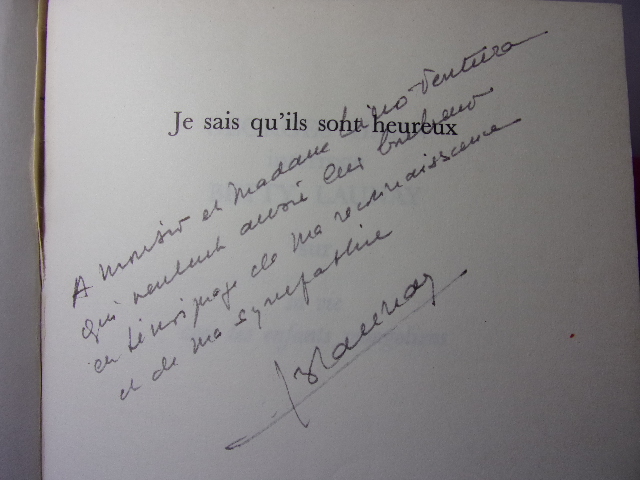 Je sais qu'ils sont heureux
A Monsieur et Madame Lino Ventura
qui veulent aussi leur bonheur
en témoignage de ma reconnaissance
et de ma sympathie